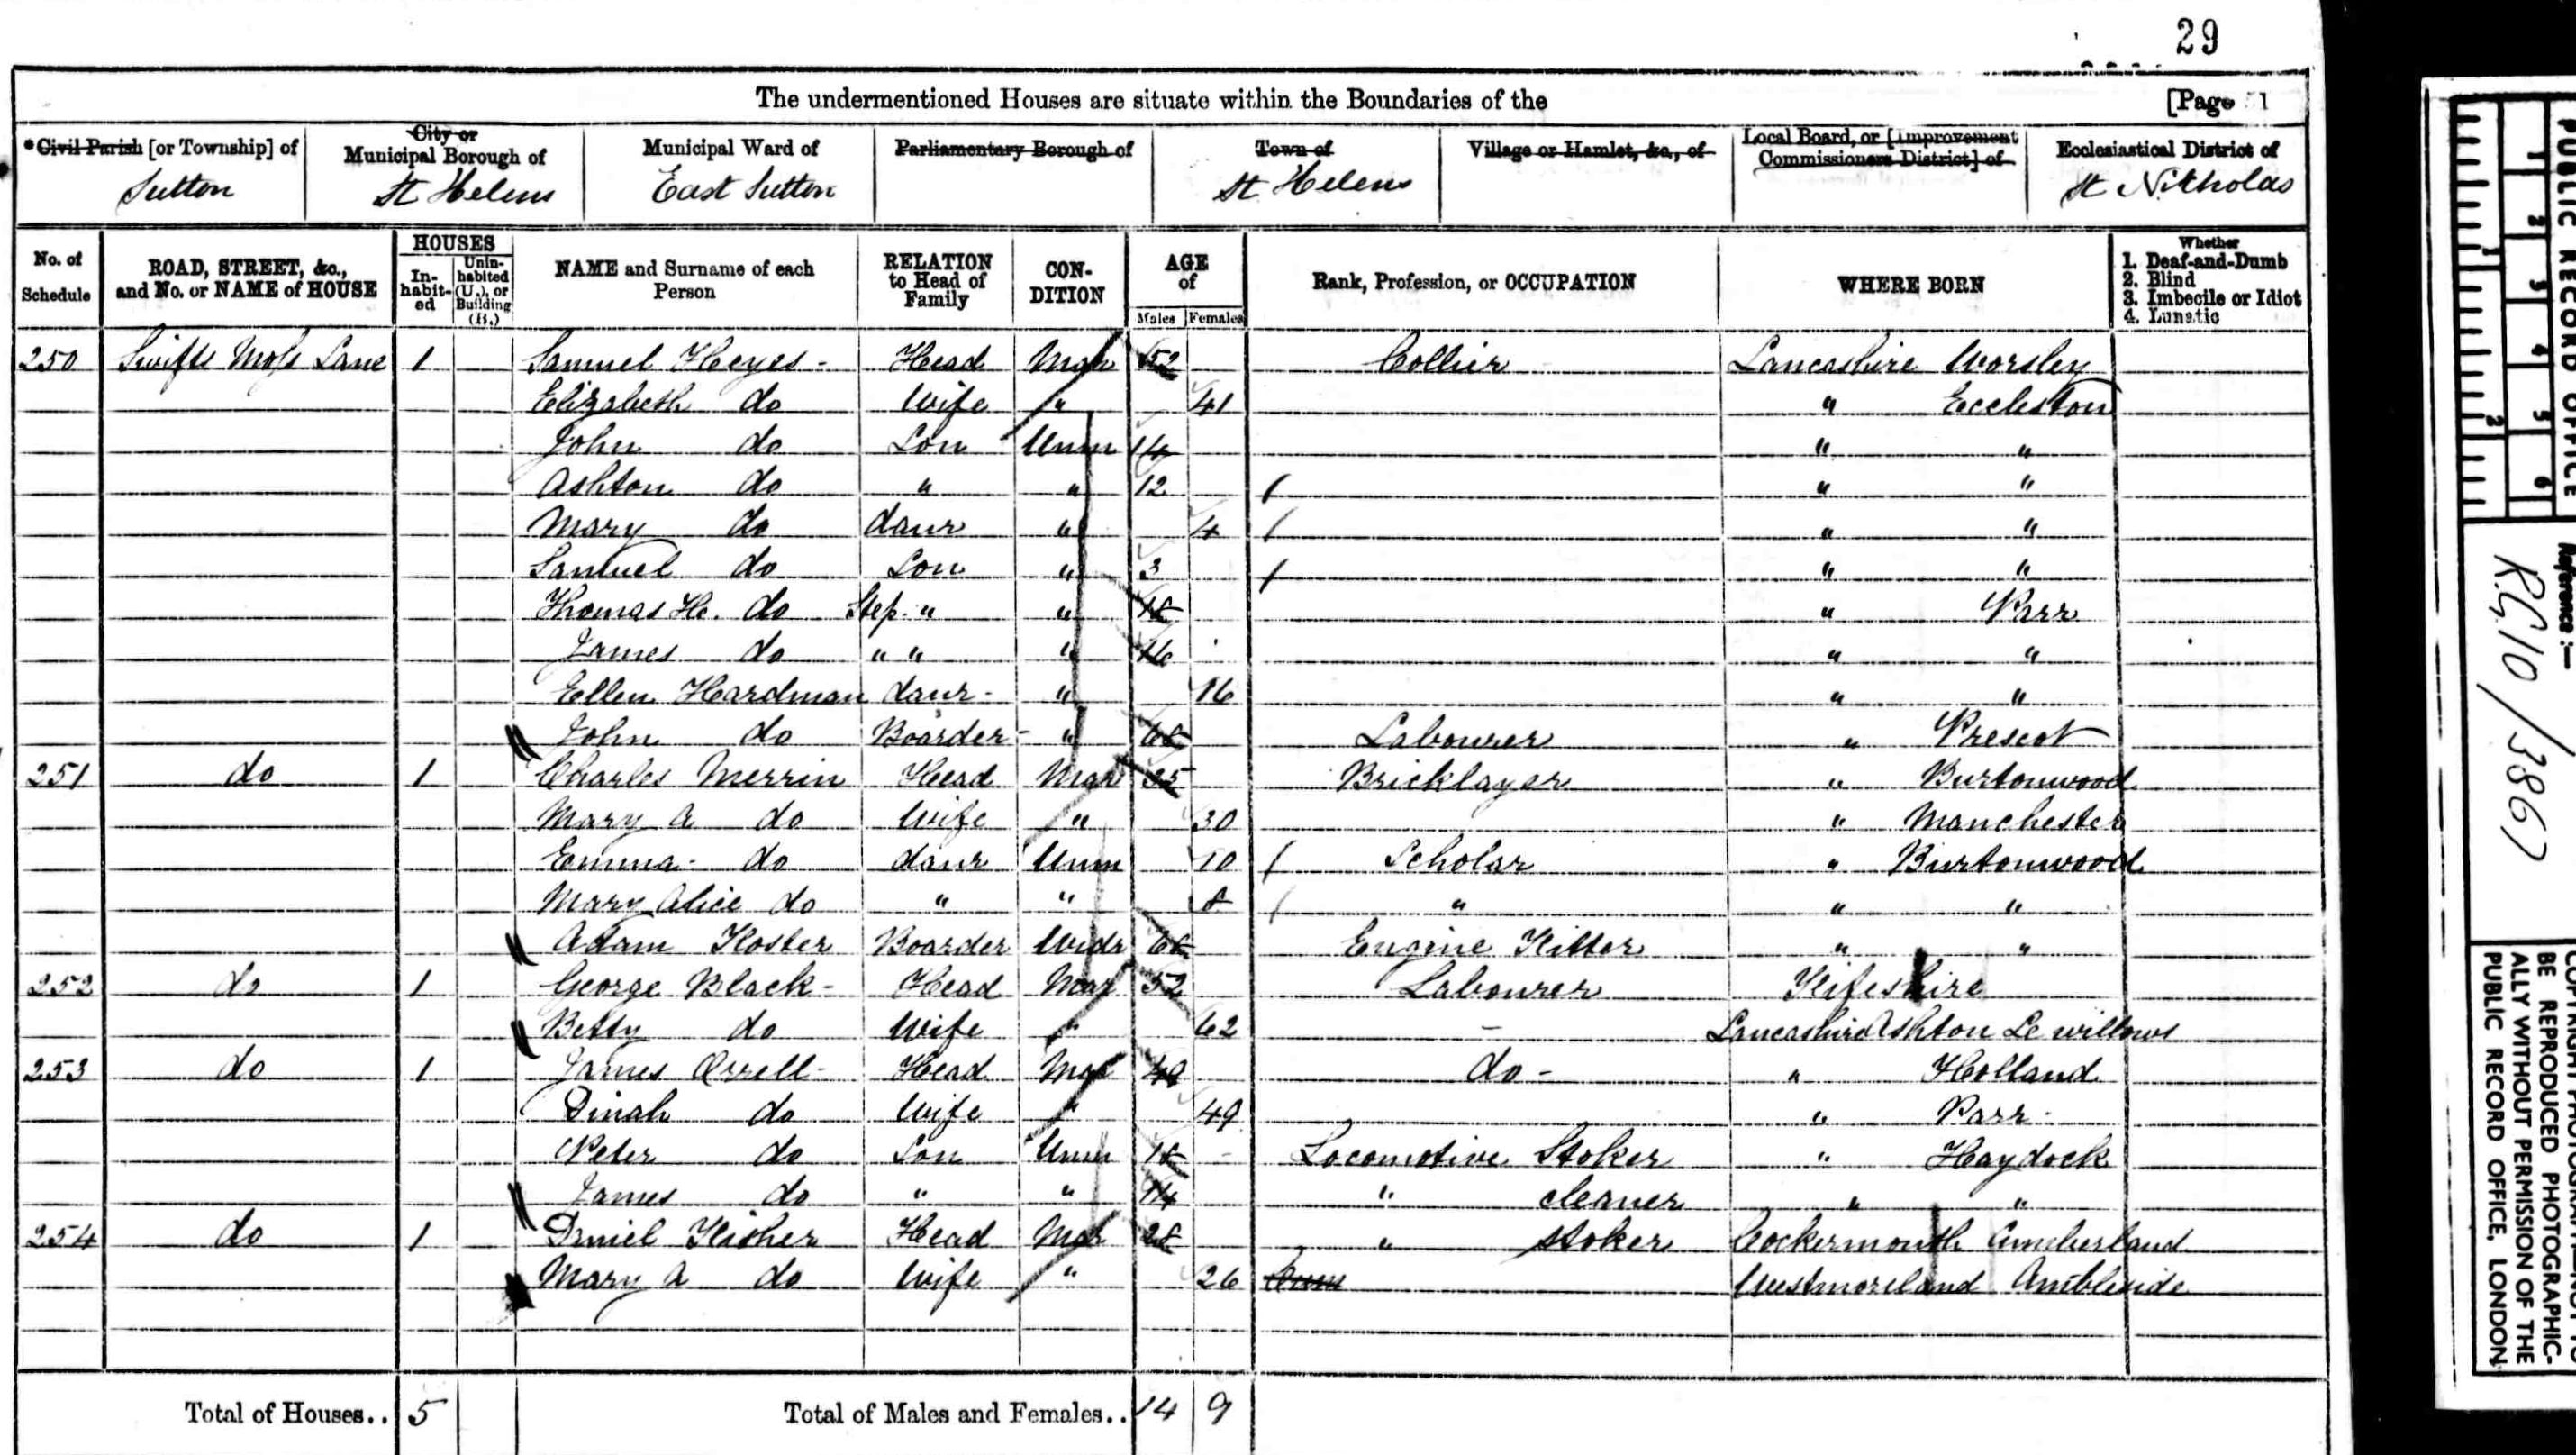 29
The undermentioned Houses are situate within the Boundaries of the [Page 51
*Civil Parish [or Township] of Sutton
City or Municipal Borough of St Helens
Municipal Ward of East Sutton
Parliamentary Borough of
Town of St Helens
Village or Hamlet, &c., of
Local Board, or [Improvement Commissioners District] of
Ecclesiastical District of St Nicholas
No. of Schedule
ROAD, STREET, &c., and No. or NAME of HOUSE
HOUSES In-habit-ed Unin-habited (U.), or Building (B.)
NAME and Surname of each Person
RELATION to Head of Family
CON-DITION
AGE of Males Females
Rank, Profession, or OCCUPATION
WHERE BORN
Whether 1. Deaf-and-Dumb 2. Blind 3. Imbecile or Idiot 4. Lunatic
250 Swifts Moss Lane 1 Samuel Heyes - Head Mar 52 Collier Lancashire Worsley
Elizabeth do Wife " 41 " Eccleston
John do Son Unm 14 " "
Ashton do " " 12 " "
Mary do daur " 4 " "
Samuel do Son " 3 " "
Thomas H. do Step " " 18 " Parr
James do " " " 16 " "
Ellen Hardman daur - " 16 " "
John do Boarder - " 68 Labourer " Prescot
251 do 1 Charles Merrin Head Mar 35 Bricklayer " Burtonwood
Mary A do Wife " 30 " Manchester
Emma - do daur Unm 10 Scholar " Burtonwood
Mary Alice do " " 8 " " "
Adam Foster Boarder Widr Engine Fitter " "
252 do 1 George Black - Head Mar 52 Labourer Fifeshire
Betty do Wife " 62 - Lancashire Ashton Le willows
253 do 1 James Orrell - Head Mar 49 do - " Holland
Dinah do Wife " 49 " Parr -
Peter do Son Unm 18 - Locomotive Stoker " Haydock
James do " " 14 " cleaner " "
254 do 1 Daniel Fisher Head Mar 28 " stoker Cockermouth Cumberland
Mary A do Wife " 26 Cum Westmoreland Ambleside
Total of Houses.. 5 Total of Males and Females.. 14 9
PUBLIC RECORD OFFICE
1 2 3 4 5 6
1 2
Reference :—
R.G. 10 / 3867
COPYRIGHT PHOTOGRAPH—NOT TO
BE REPRODUCED PHOTOGRAPHIC-
ALLY WITHOUT PERMISSION OF THE
PUBLIC RECORD OFFICE, LONDON